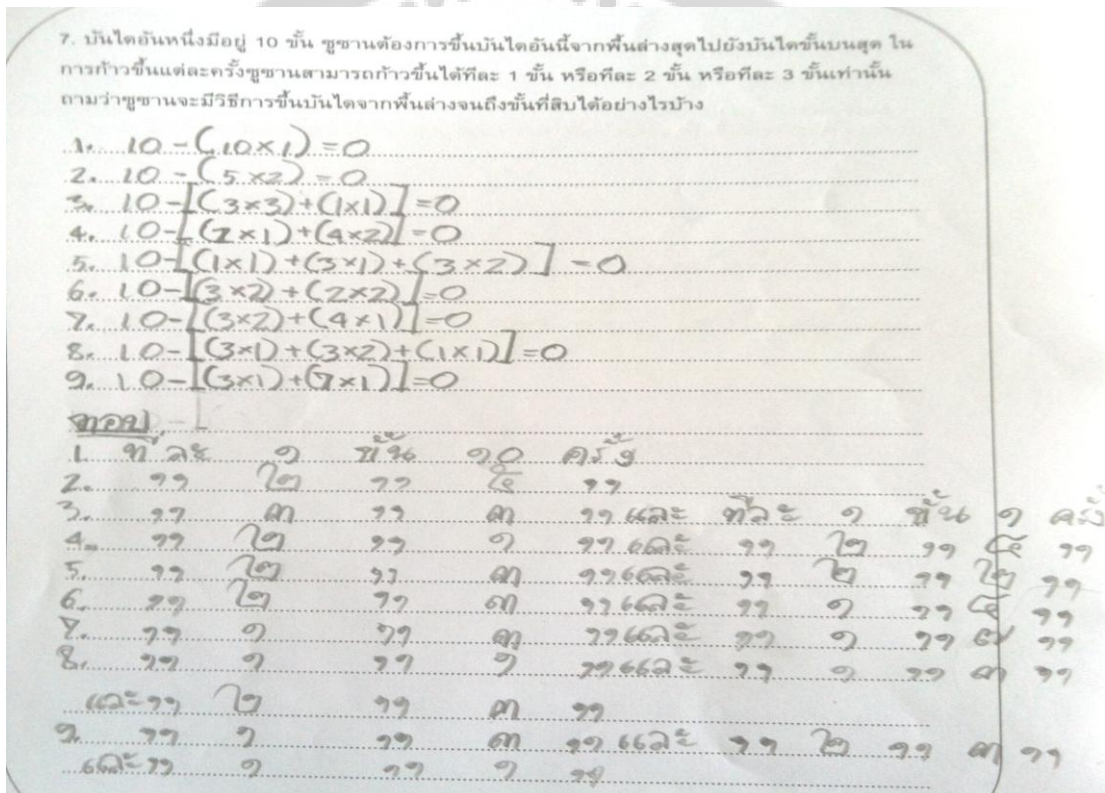 7. บันไดอันหนึ่งมีอยู่ 10 ขั้น ซูซานต้องการขึ้นบันไดอันนี้จากพื้นล่างสุดไปยังบันไดขั้นบนสุด ใน
การก้าวขึ้นแต่ละครั้งซูซานสามารถก้าวขึ้นได้ทีละ 1 ขั้น หรือทีละ 2 ขั้น หรือทีละ 3 ขั้นเท่านั้น
ถามว่าซูซานจะมีวิธีการขึ้นบันไดจากพื้นล่างจนถึงขั้นที่สิบได้อย่างไรบ้าง
1. 10-(10×1)=0
2. 10-(5×2)=0
3. 10-[(3×3)+(1×1)]=0
4. 10-[(2×1)+(4×2)]=0
5. 10-[(1×1)+(3×1)+(3×2)]=0
6. 10-[(3×2)+(2×2)]=0
7. 10-[(3×2)+(4×1)]=0
8. 10-[(3×1)+(3×2)+(1×1)]=0
9. 10-[(3×1)+(7×1)]=0
ตอบ
1. ทีละ ๑ ขั้น ๑๐ ครั้ง
2. ,, ๒ ,, ๕ ,,
3. ,, ๓ ,, ๓ ,, และ ทีละ ๑ ขั้น ๑ ครั้ง
4. ,, ๒ ,, ๑ ,, และ ,, ๒ ,, ๕ ,,
5. ,, ๒ ,, ๓ ,, และ ,, ๒ ,, ๒ ,,
6. ,, ๒ ,, ๓ ,, และ ,, ๑ ,, ๕ ,,
7. ,, ๑ ,, ๓ ,, และ ,, ๑ ,, ๗ ,,
8. ,, ๑ ,, ๑ ,, และ ,, ๑ ,, ๓ ,,
และ ,, ๒ ,, ๓ ,,
9. ,, ๑ ,, ๓ ,, และ ,, ๒ ,, ๓ ,,
และ ,, ๑ ,, ๑ ,,